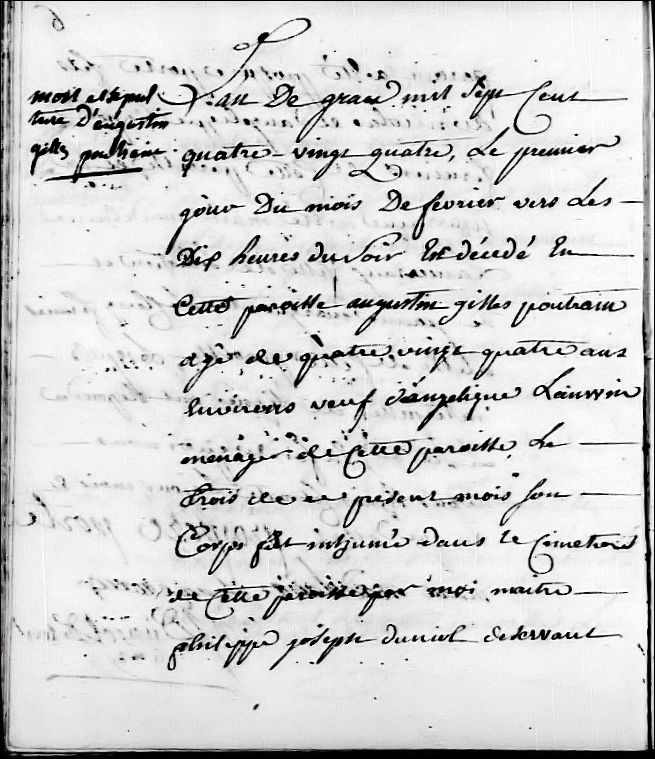 6
mort et sepul
ture D'augustin
gilles poutrain
L'an De grace mil sept Cent
quatre-vingt quatre, Le premier
jour Du mois De fevrier vers Les
Dix heures du soir Est décedé En
Cette paroisse augustin gilles poutrain
agé de quatre vingt quatre ans
Environs veuf d'angelique Lauwin
menager de Cette paroisse, Le
Trois de ce present mois son
Corps fut inhumé dans le Cimetiere
de Cette paroisse par moi, maitre
philippe joseph deservant